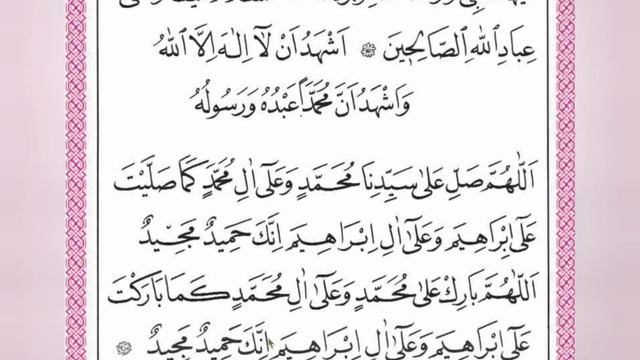 عِبَادِ اللّٰهِ الصَّالِحِينَ ۞ اَشْهَدُ اَنْ لَآ اِلٰهَ اِلَّا اللّٰهُ
وَاَشْهَدُ اَنَّ مُحَمَّدًا عَبْدُهُ وَرَسُولُهُ
اَللّٰهُمَّ صَلِّ عَلٰى سَيِّدِنَا مُحَمَّدٍ وَعَلٰٓى اٰلِ مُحَمَّدٍ كَمَا صَلَّيْتَ
عَلٰٓى اِبْرَاهِيمَ وَعَلٰٓى اٰلِ اِبْرَاهِيمَ اِنَّكَ حَمِيدٌ مَجِيدٌ
اَللّٰهُمَّ بَارِكْ عَلٰى مُحَمَّدٍ وَعَلٰٓى اٰلِ مُحَمَّدٍ كَمَا بَارَكْتَ
عَلٰٓى اِبْرَاهِيمَ وَعَلٰٓى اٰلِ اِبْرَاهِيمَ اِنَّكَ حَمِيدٌ مَجِيدٌ ۞